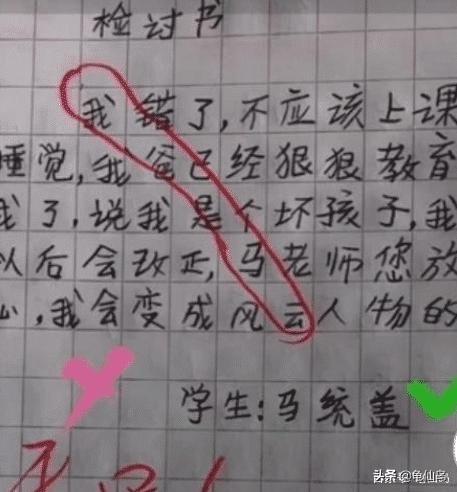 检讨书
我错了,不应该上课
睡觉,我爸已经狠狠教育
我了,说我是个坏孩子,我
以后会改正,马老师您放
心,我会变成风云人物的
学生:马统盖
头条 @龟仙岛